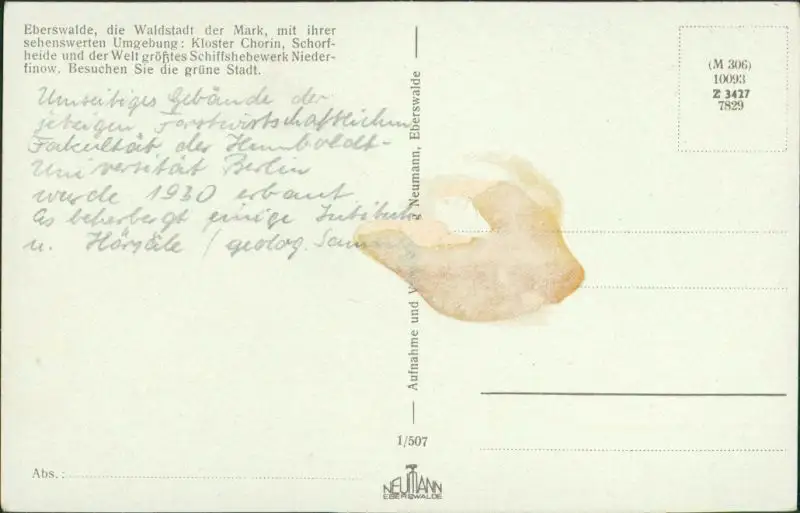 Eberswalde, die Waldstadt der Mark, mit ihrer
sehenswerten Umgebung: Kloster Chorin, Schorf-
heide und der Welt größtes Schiffshebewerk Nieder-
finow. Besuchen Sie die grüne Stadt.
Umseitiges Gebäude der
jetzigen Forstwirtschaftlichen
Fakultät der Humboldt-
Universität Berlin
wurde 1930 erbaut
Es beherbergt einige Institute
u. Hörsäle / geolog.
Aufnahme und
Neumann, Eberswalde
(M 306)
10093
Z 3427
7829
1/507
Abs.:
NEUMANN
EBERSWALDE